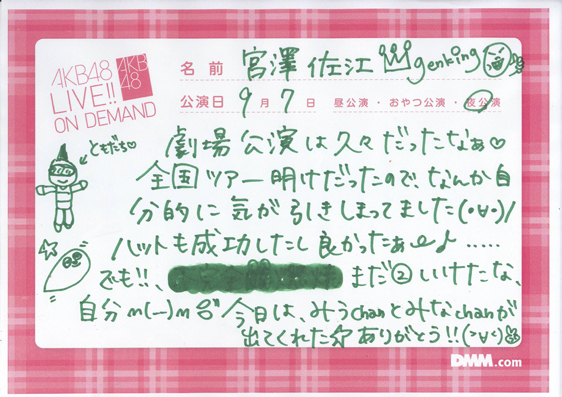 AKB48
LIVE!!
ON DEMAND
AKB
48
名前 宮澤佐江 genking
公演日 9月7日 昼公演・おやつ公演・夜公演
ともだち♡
劇場公演は久々だったなぁ♡
全国ツアー明けだったので、なんか自
分的に気が引きしまってました(・∀・)/
ハットも成功したし良かったぁ♪.....
でも!!、 まだ②いけたな、
自分m(__)m 今日は、みうchanとみなchanが
出てくれた☆ありがとう!!(>∀<)
DMM.com